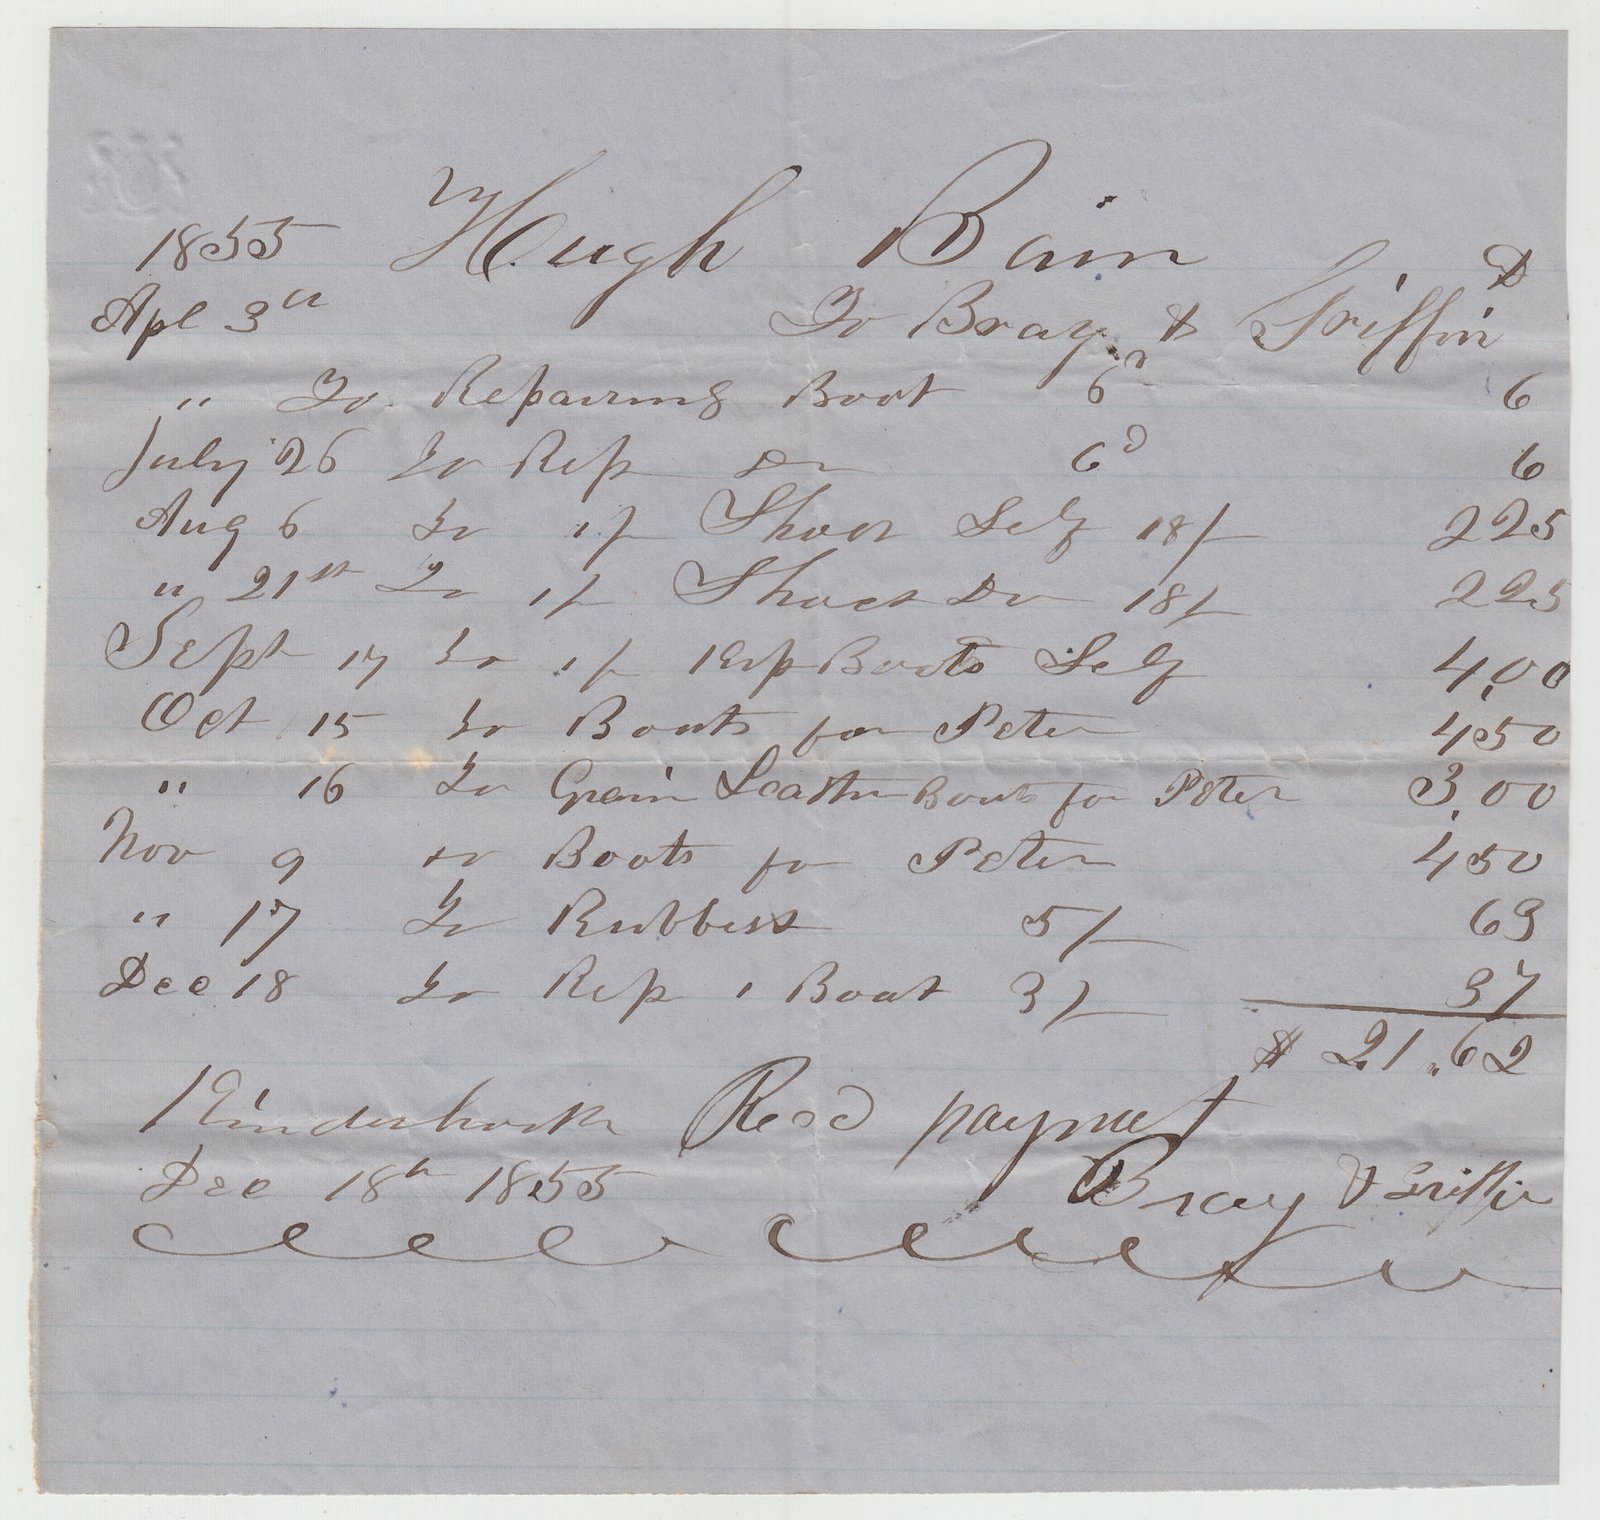 1855 Hugh Bain D
Apl 3rd To Bray & Griffin
" To Repairing Boot 6d 6
July 26 To Rep Do 6d 6
Aug 6 To 1 p Shoes Self 18/ 225
" 21st To 1 p Shoes Do 18/ 225
Sept 17 To 1 p Kip Boots Self 4,00
Oct 15 To Boots for Peter 450
" 16 To Grain Leather Boots for Peter 3,00
Nov 9 To Boots for Peter 4,50
" 17 To Rubbers 5/ 63
Dec 18 To Rep 1 Boot 3/ 37
$ 21.62
Kinderhook Recd payment
Dec 18th 1855 Bray & Griffin